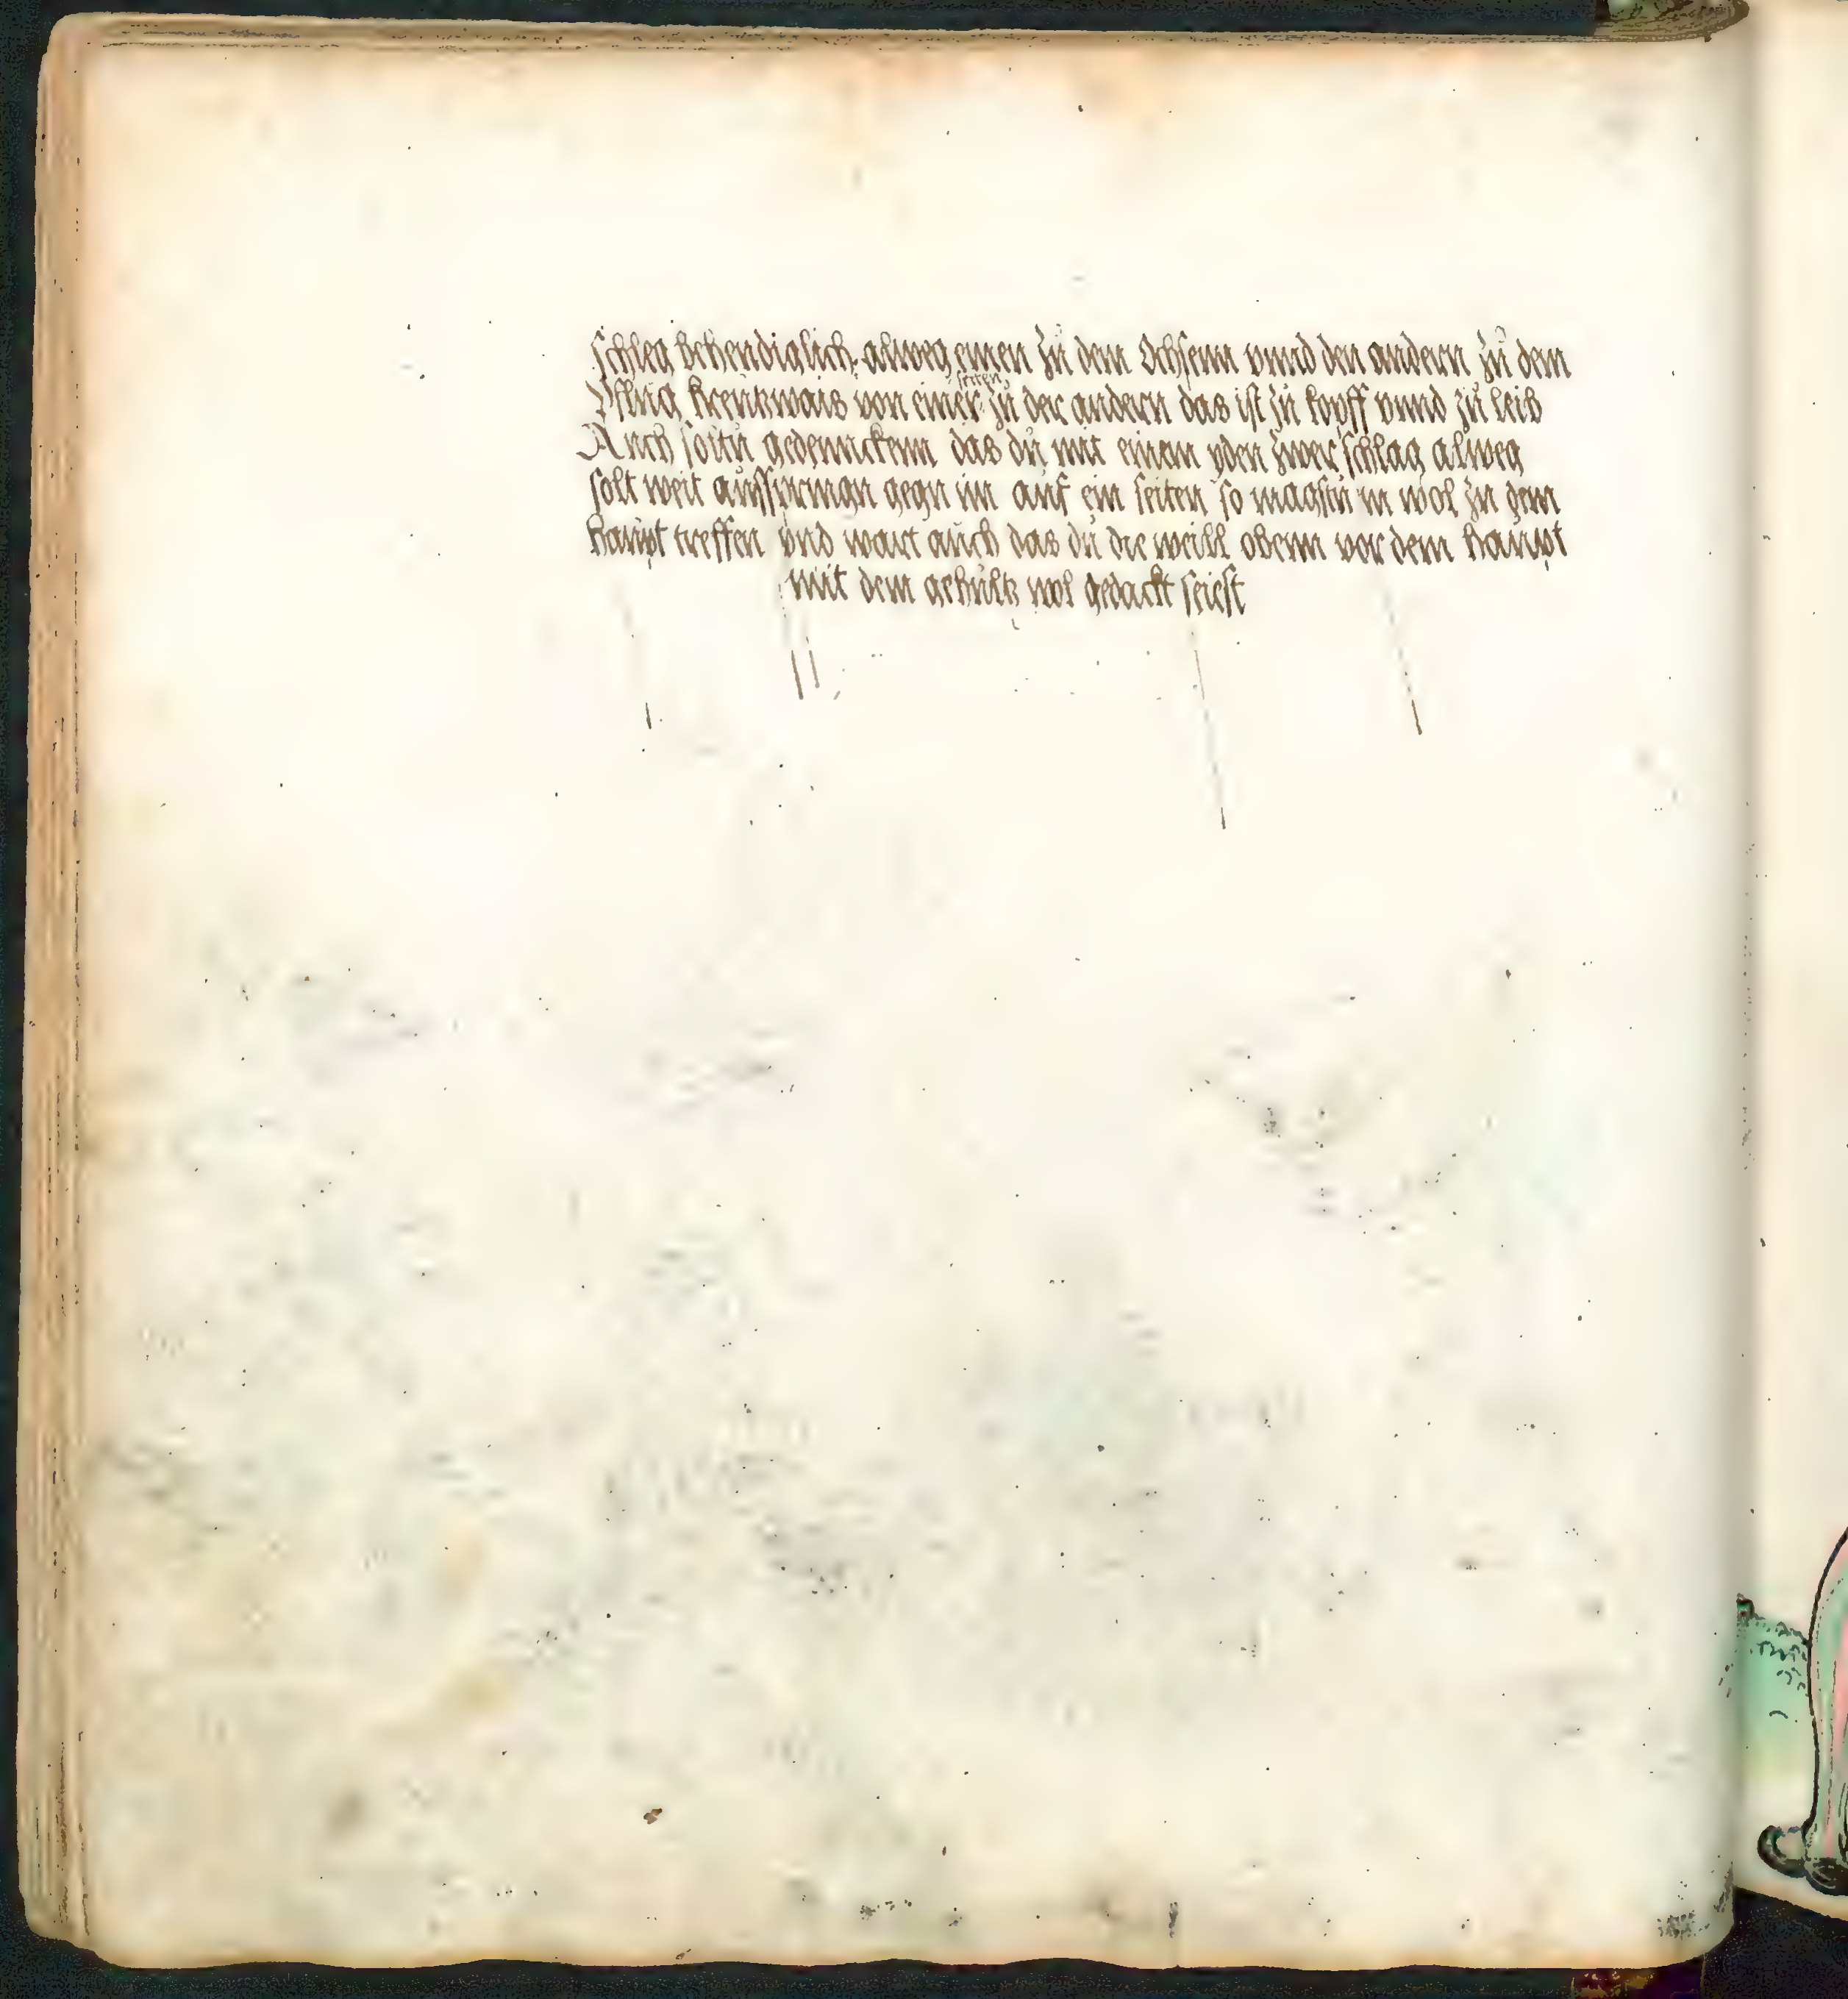 schleg behendiglich alweg einen zů dem Ochsenn vnnd den andern zů dem
Pflůg kreützwais von einer seiten zů der andern das ist zů kopff vnnd zů leib
Auch soltu gedennckenn das dů mit einem yden zwer schlag alweg
solt weit aůsspringn gegn im auf ein seiten so magstu in wol zu dem
haupt treffen vnd wart aůch das dů die weill obenn vor dem haupt
mit dem gehůltz wol gedackt seiest